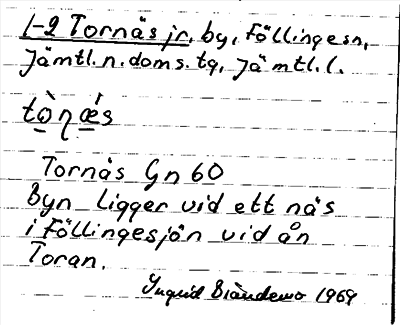 1-2 Tornäs jr, by, Föllinge sn,
Jämtl. n. doms. tg, Jämtl. l.
tòṇǽs
Tornäs Gn 60
Byn ligger vid ett näs
i Föllingesjön vid ån
Toran.
Ingrid 1969